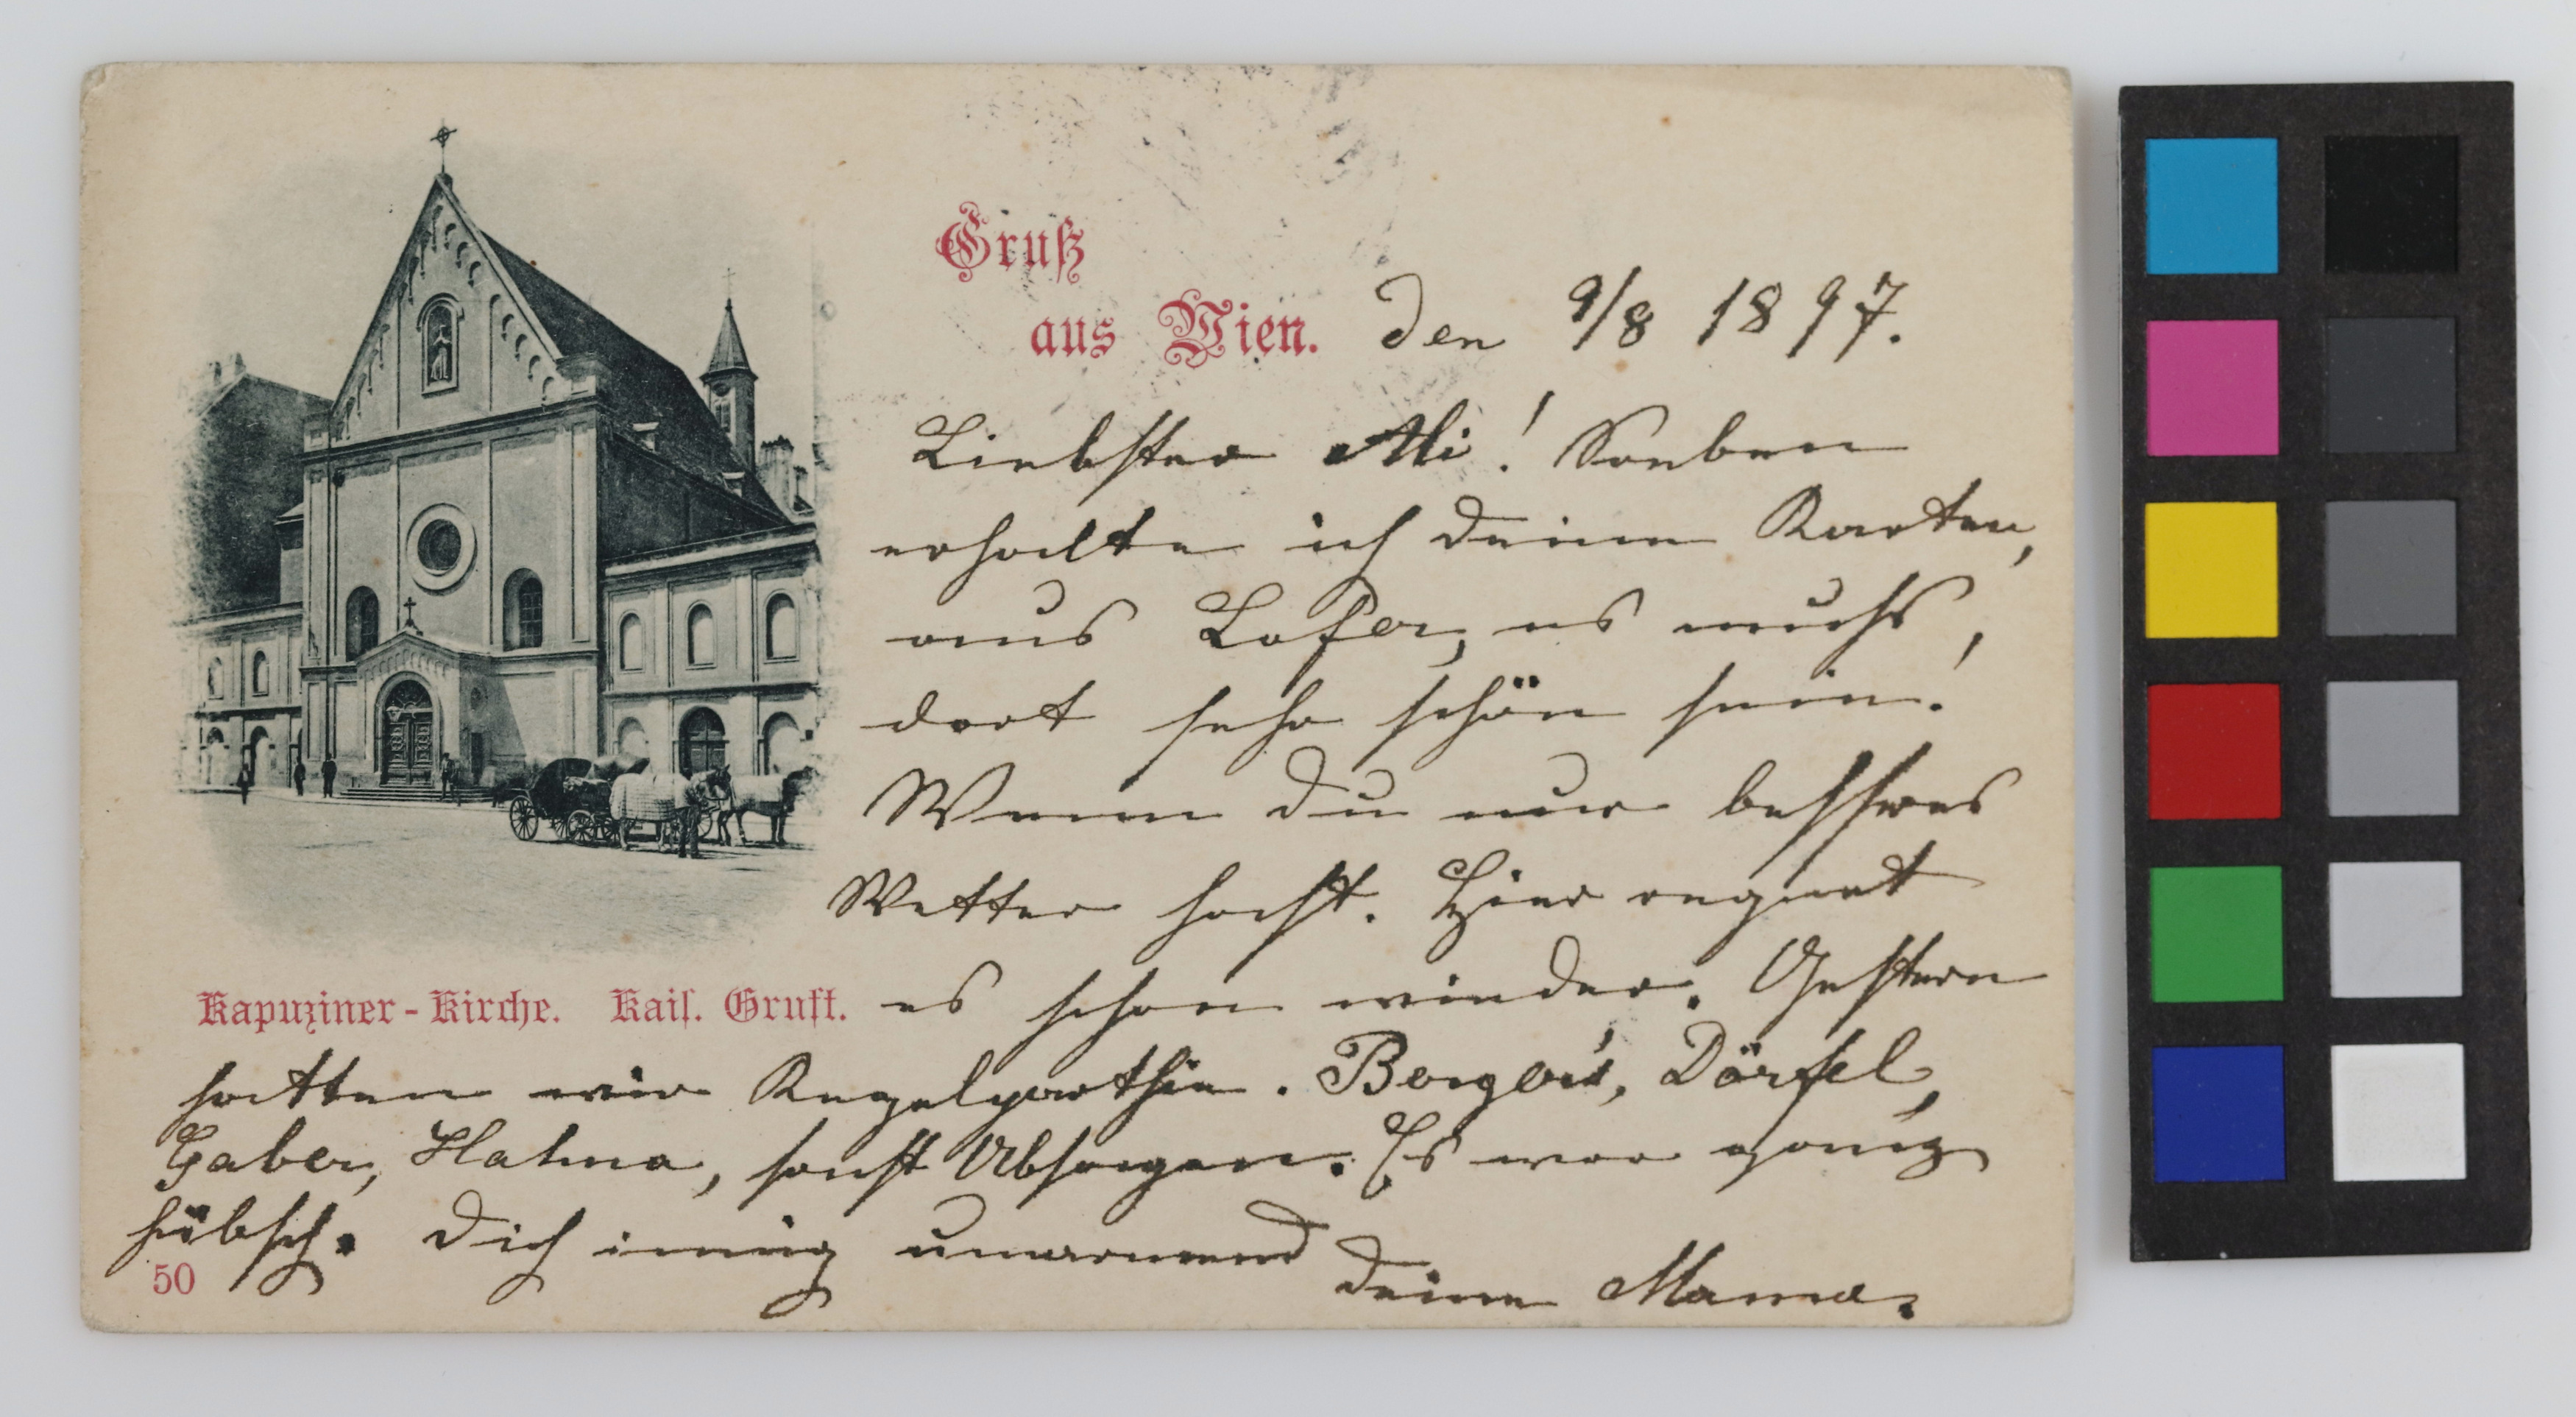 Gruß
aus Wien. den 9/8 1897.
Liebster Ali! Soeben
erhalte ich deine Karten,
aus Lofer, es muhs,
dort sehr schön sein!
Wenn du nur besseres
Wetter hast. Hier regnet
Kapuziner-Kirche. Kais. Gruft. es schon wieder. Gestern
hatten wir Kegelparthie. Berger's, Dörfel,
Gaber, Hatma, sonst Absagen. Es war ganz
hübsch. Dich innig umarmend
deine Mama.
50